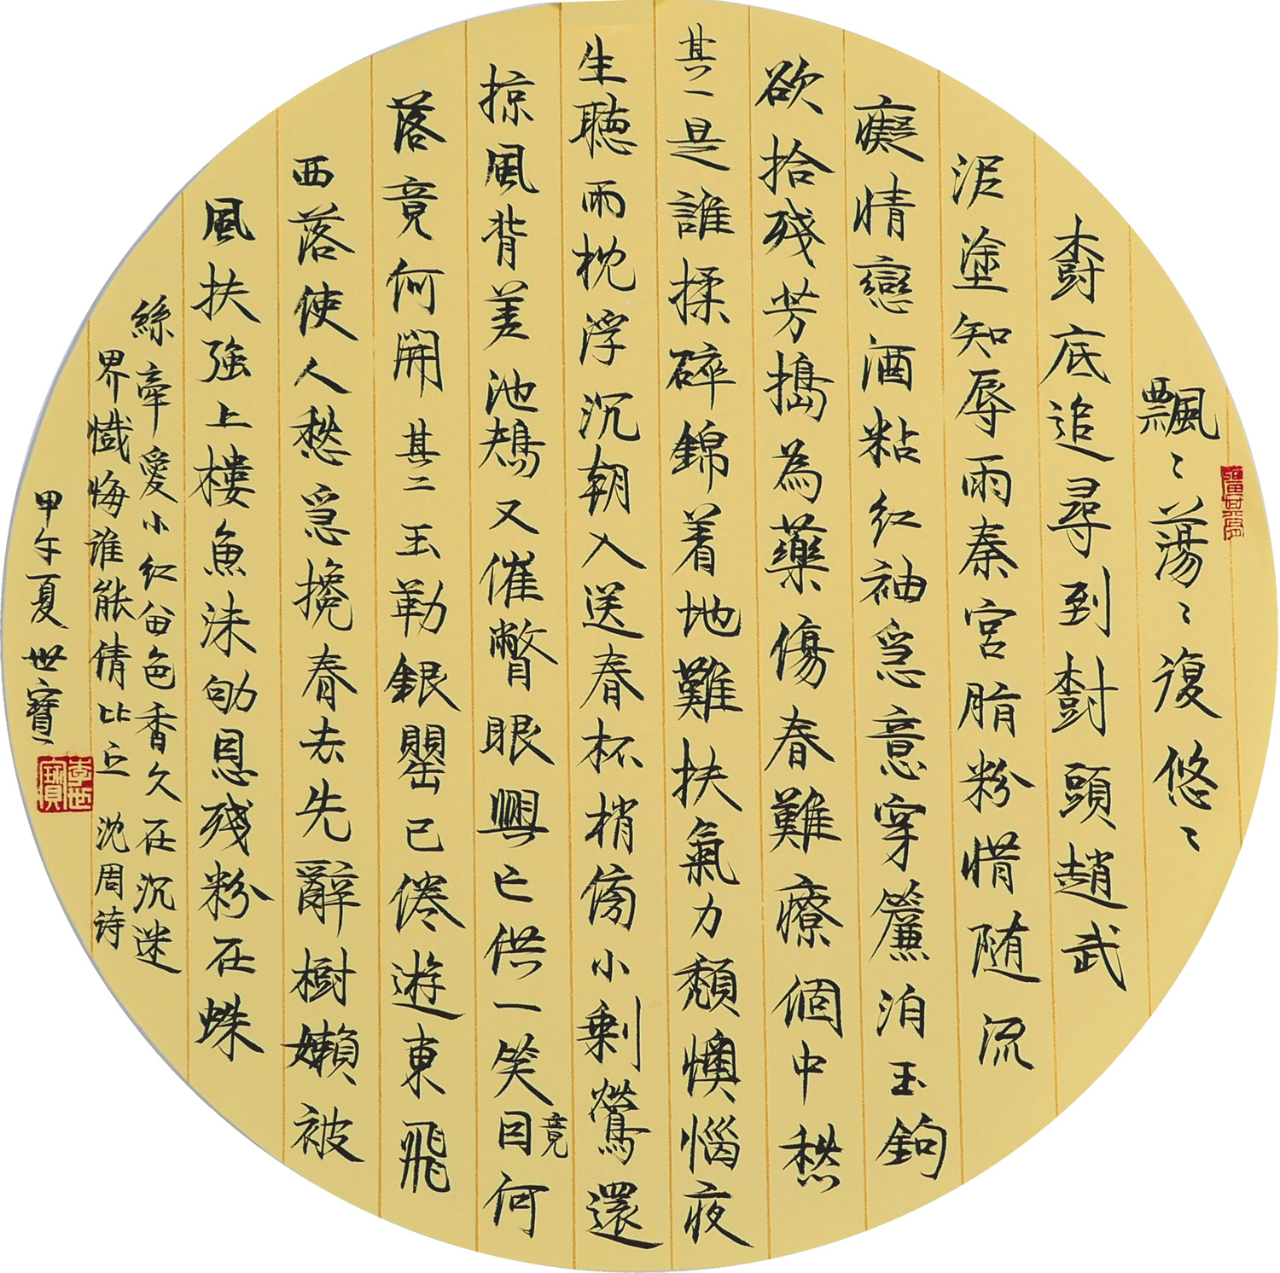 飄〻蕩〻復悠〻
樹底追尋到樹頭趙武
泥塗知辱雨秦宮脂粉惜随流
癡情戀酒粘紅袖急意穿簾泊玉鉤
欲拾殘芳搗為藥傷春難療個中愁
其一是誰揉碎錦着地難扶氣力頹懊惱夜
生聽雨枕浮沉朝入送春杯梢傍小剩鶯還
掠風背差池鴂又催瞥眼興亡供一笑竟目何
落竟何開其二玉勒銀罌已倦遊東飛
西落使人愁急攙春去先辭樹嬾被
風扶強上樓魚沬劬恩殘粉在蛛
絲牽愛小紅留色香久在沉迷
界懺悔誰能倩比丘沈周诗
甲午夏世寶
李世寶